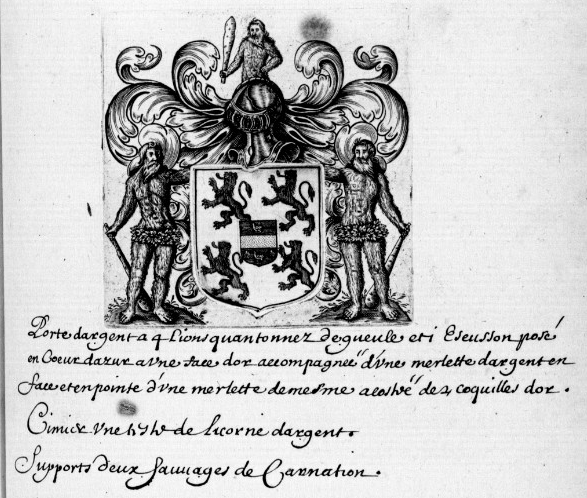 Porte dargent a 4 Lions quantonnez de gueule et i Escusson posé
en Coeur dazur a vne face dor accompagnée d'vne merlette dargent en
face et en pointe d'vne merlette de mesme acostée de 2 coquilles dor.
Cimier vne teste de licorne dargent.
Supports deux sauuages de Carnation.